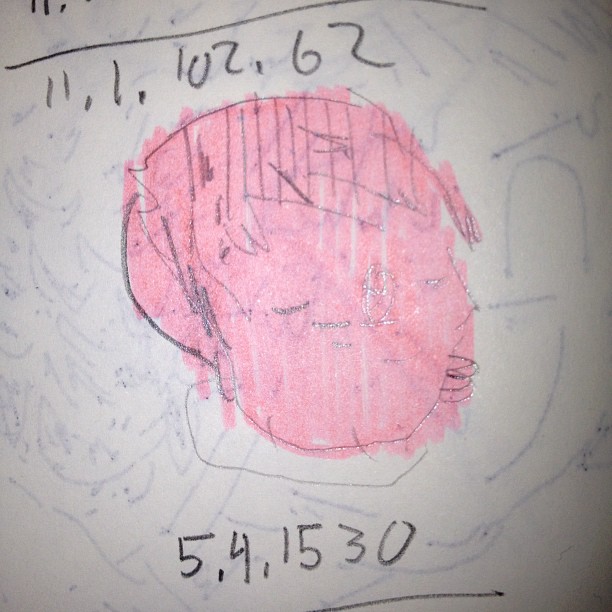 11.1.102.62
5.4.1530